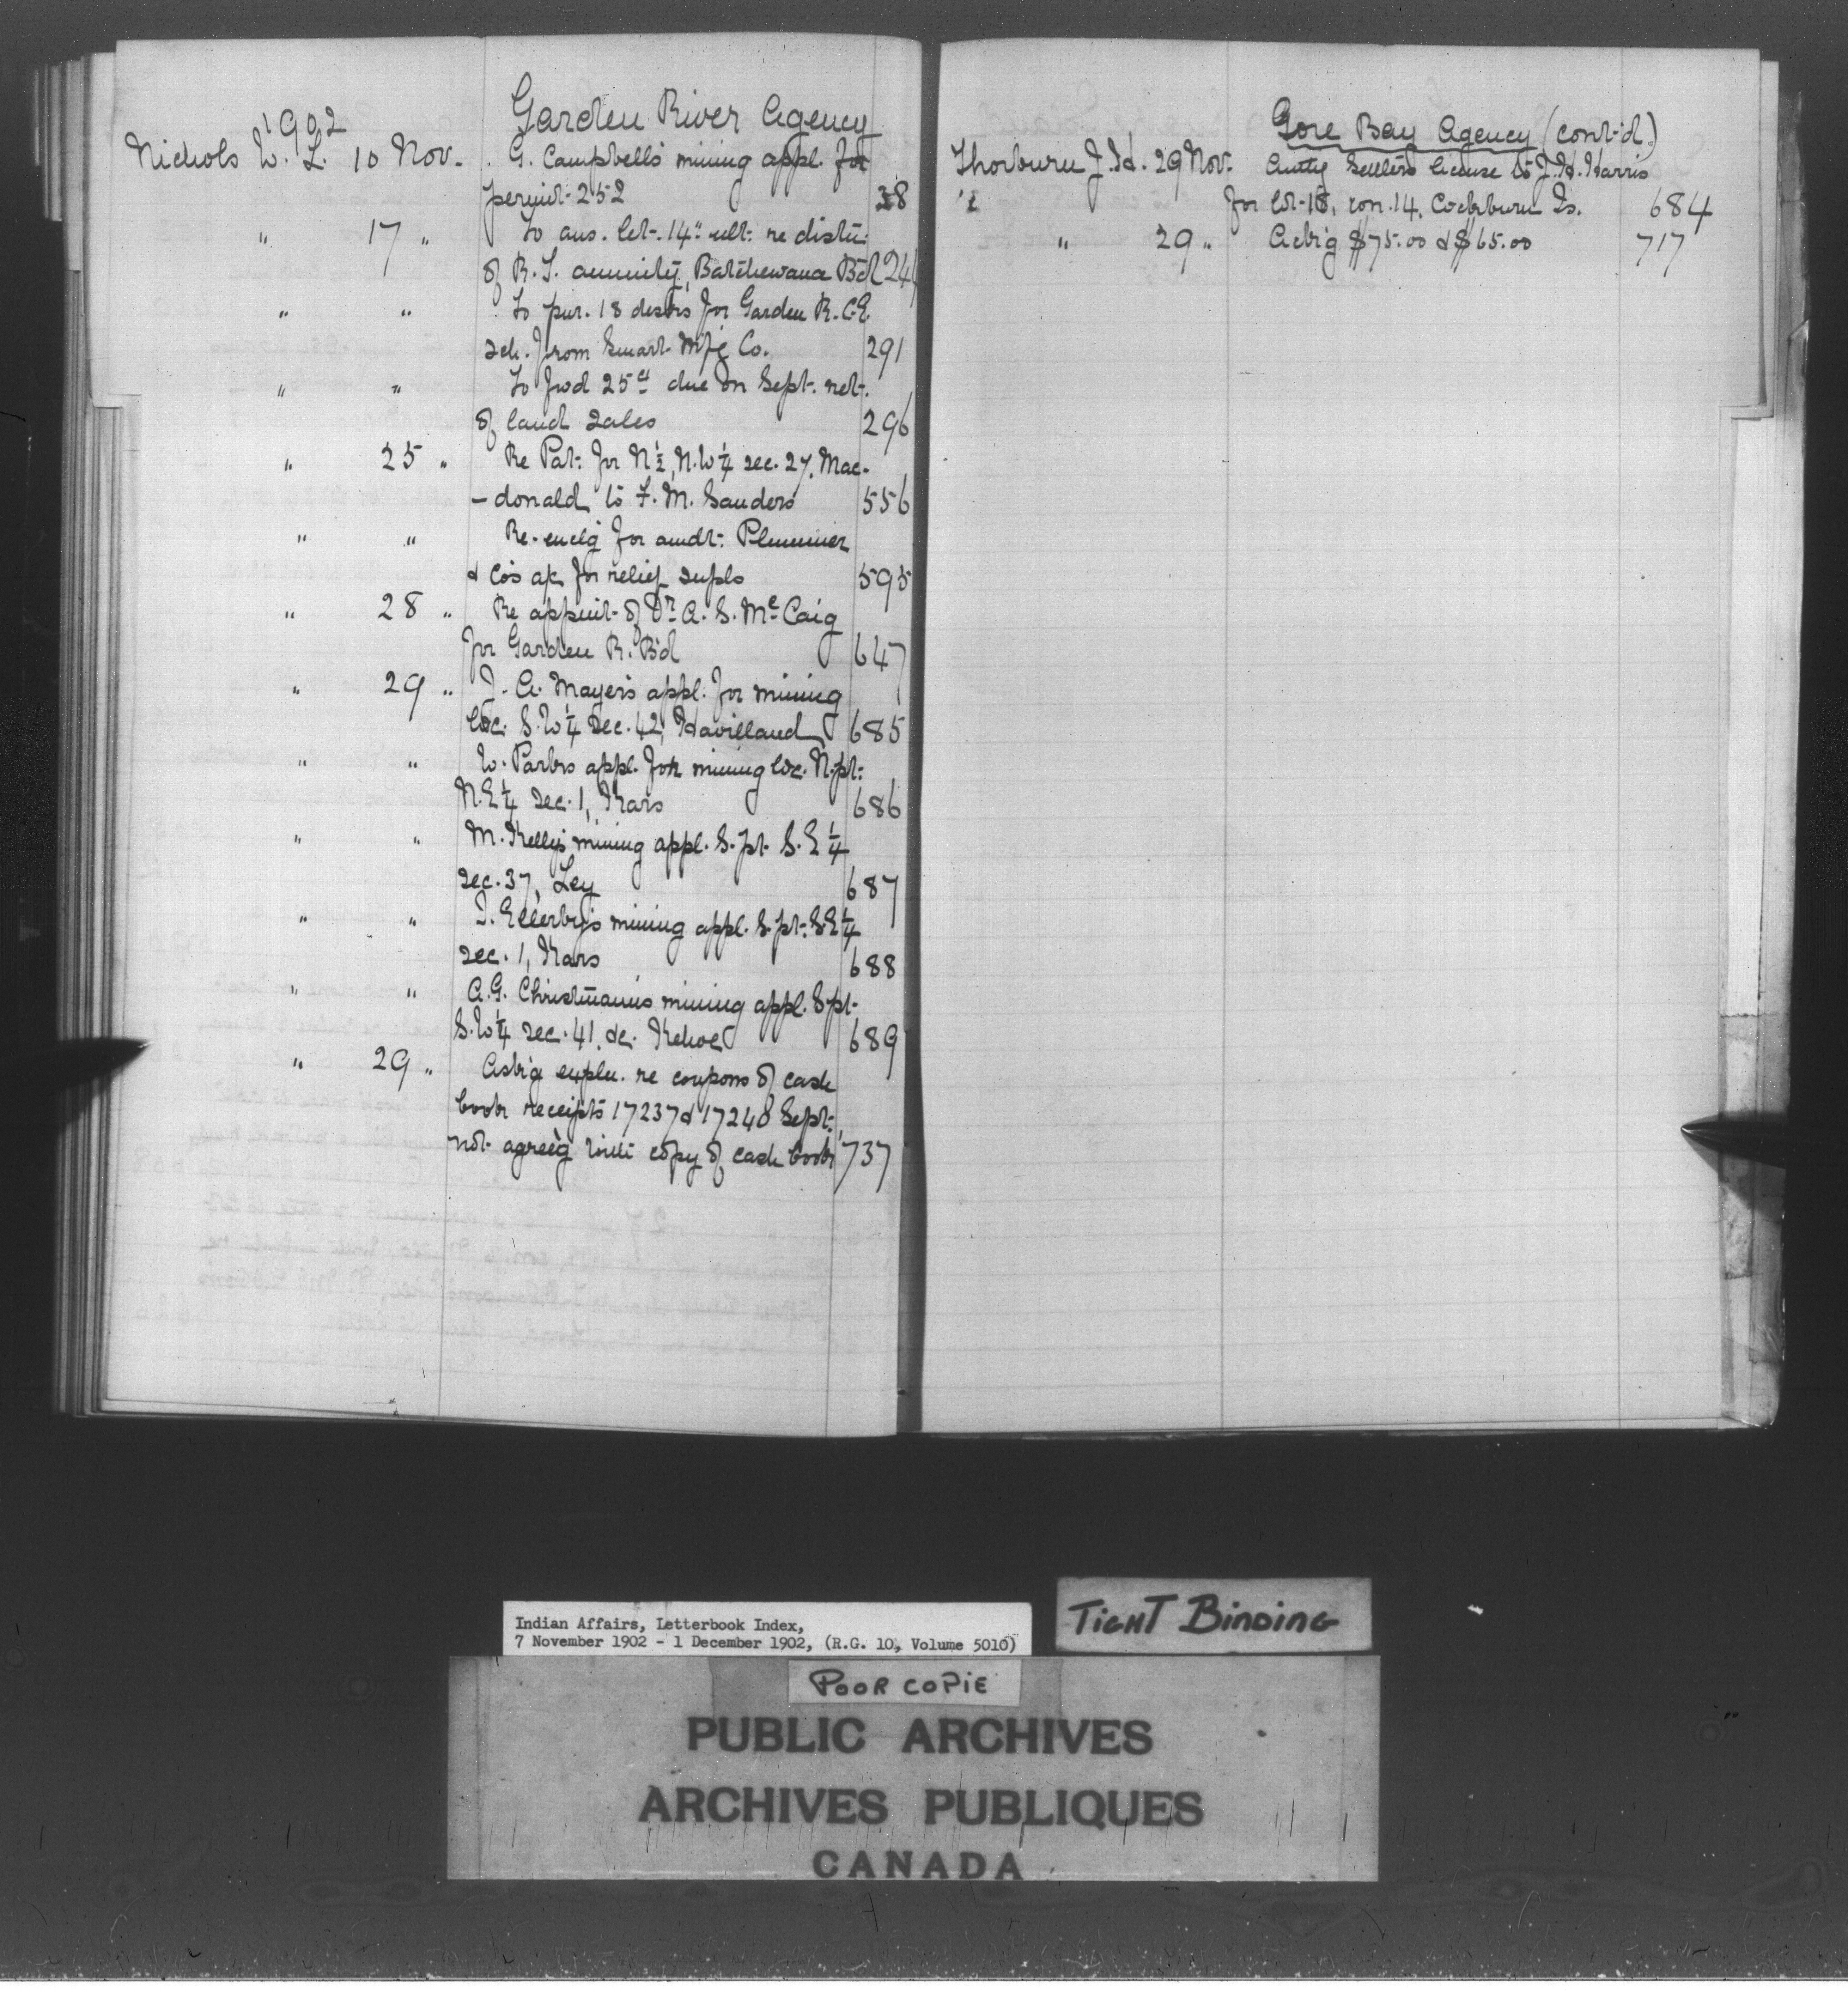 1902
Garden River Agency
Nichols W. L. 10 Nov. G. Campbell's mining appl. for
permit 252 38
" 17 " To ans. let. 14" ult. re distn.
of R. T. annuity, Batchewana Bd
" " To pur. 18 desks for Garden R. C.E.
sch. from Smart Mfg Co. 291
" " To fwd 25¢ due on Sept. ret.
of land sales 296
" 25 " Re Pat. for N½, N.W¼ sec. 27, Mac-
-donald to F. M. Sanders 556
" " Re-enclg for amdt. Plummer
& Co's a/c for relief supls 595
" 28 " Re appmt of Dr A. S. McCaig
for Garden R. Bd 647
" 29 " J. A. Mayer's appl. for mining
loc. S.W¼ sec. 42, Havilland 685
" " W. Parks appl. for mining loc. N. pt.
N.E¼ sec. 1, Kars 686
" " M. Kelly's mining appl. S. pt. S.E¼
sec. 37, Ley 687
" " J. Ellerby's mining appl. S. pt. S.E¼
sec. 1, Kars 688
" " A.G. Christman's mining appl. S pt.
S.W¼ sec. 41, &c. Kehoe 689
" 29 " Askig expln. re coupons of cash
book receipts 17237 & 17248 Sept.
not agreeg with copy of cash book 737
Gore Bay Agency (cont'd.)
Thorburn J. H. 29 Nov. Settlers license to J. H. Harris
for lot 18, con. 14, Cockburn Is. 684
" 29 " Ackg $75.00 & $65.00 717
Indian Affairs, Letterbook Index,
7 November 1902 - 1 December 1902, (R.G. 10, Volume 5010)
TIGHT BINDING
POOR COPIE
PUBLIC ARCHIVES
ARCHIVES PUBLIQUES
CANADA